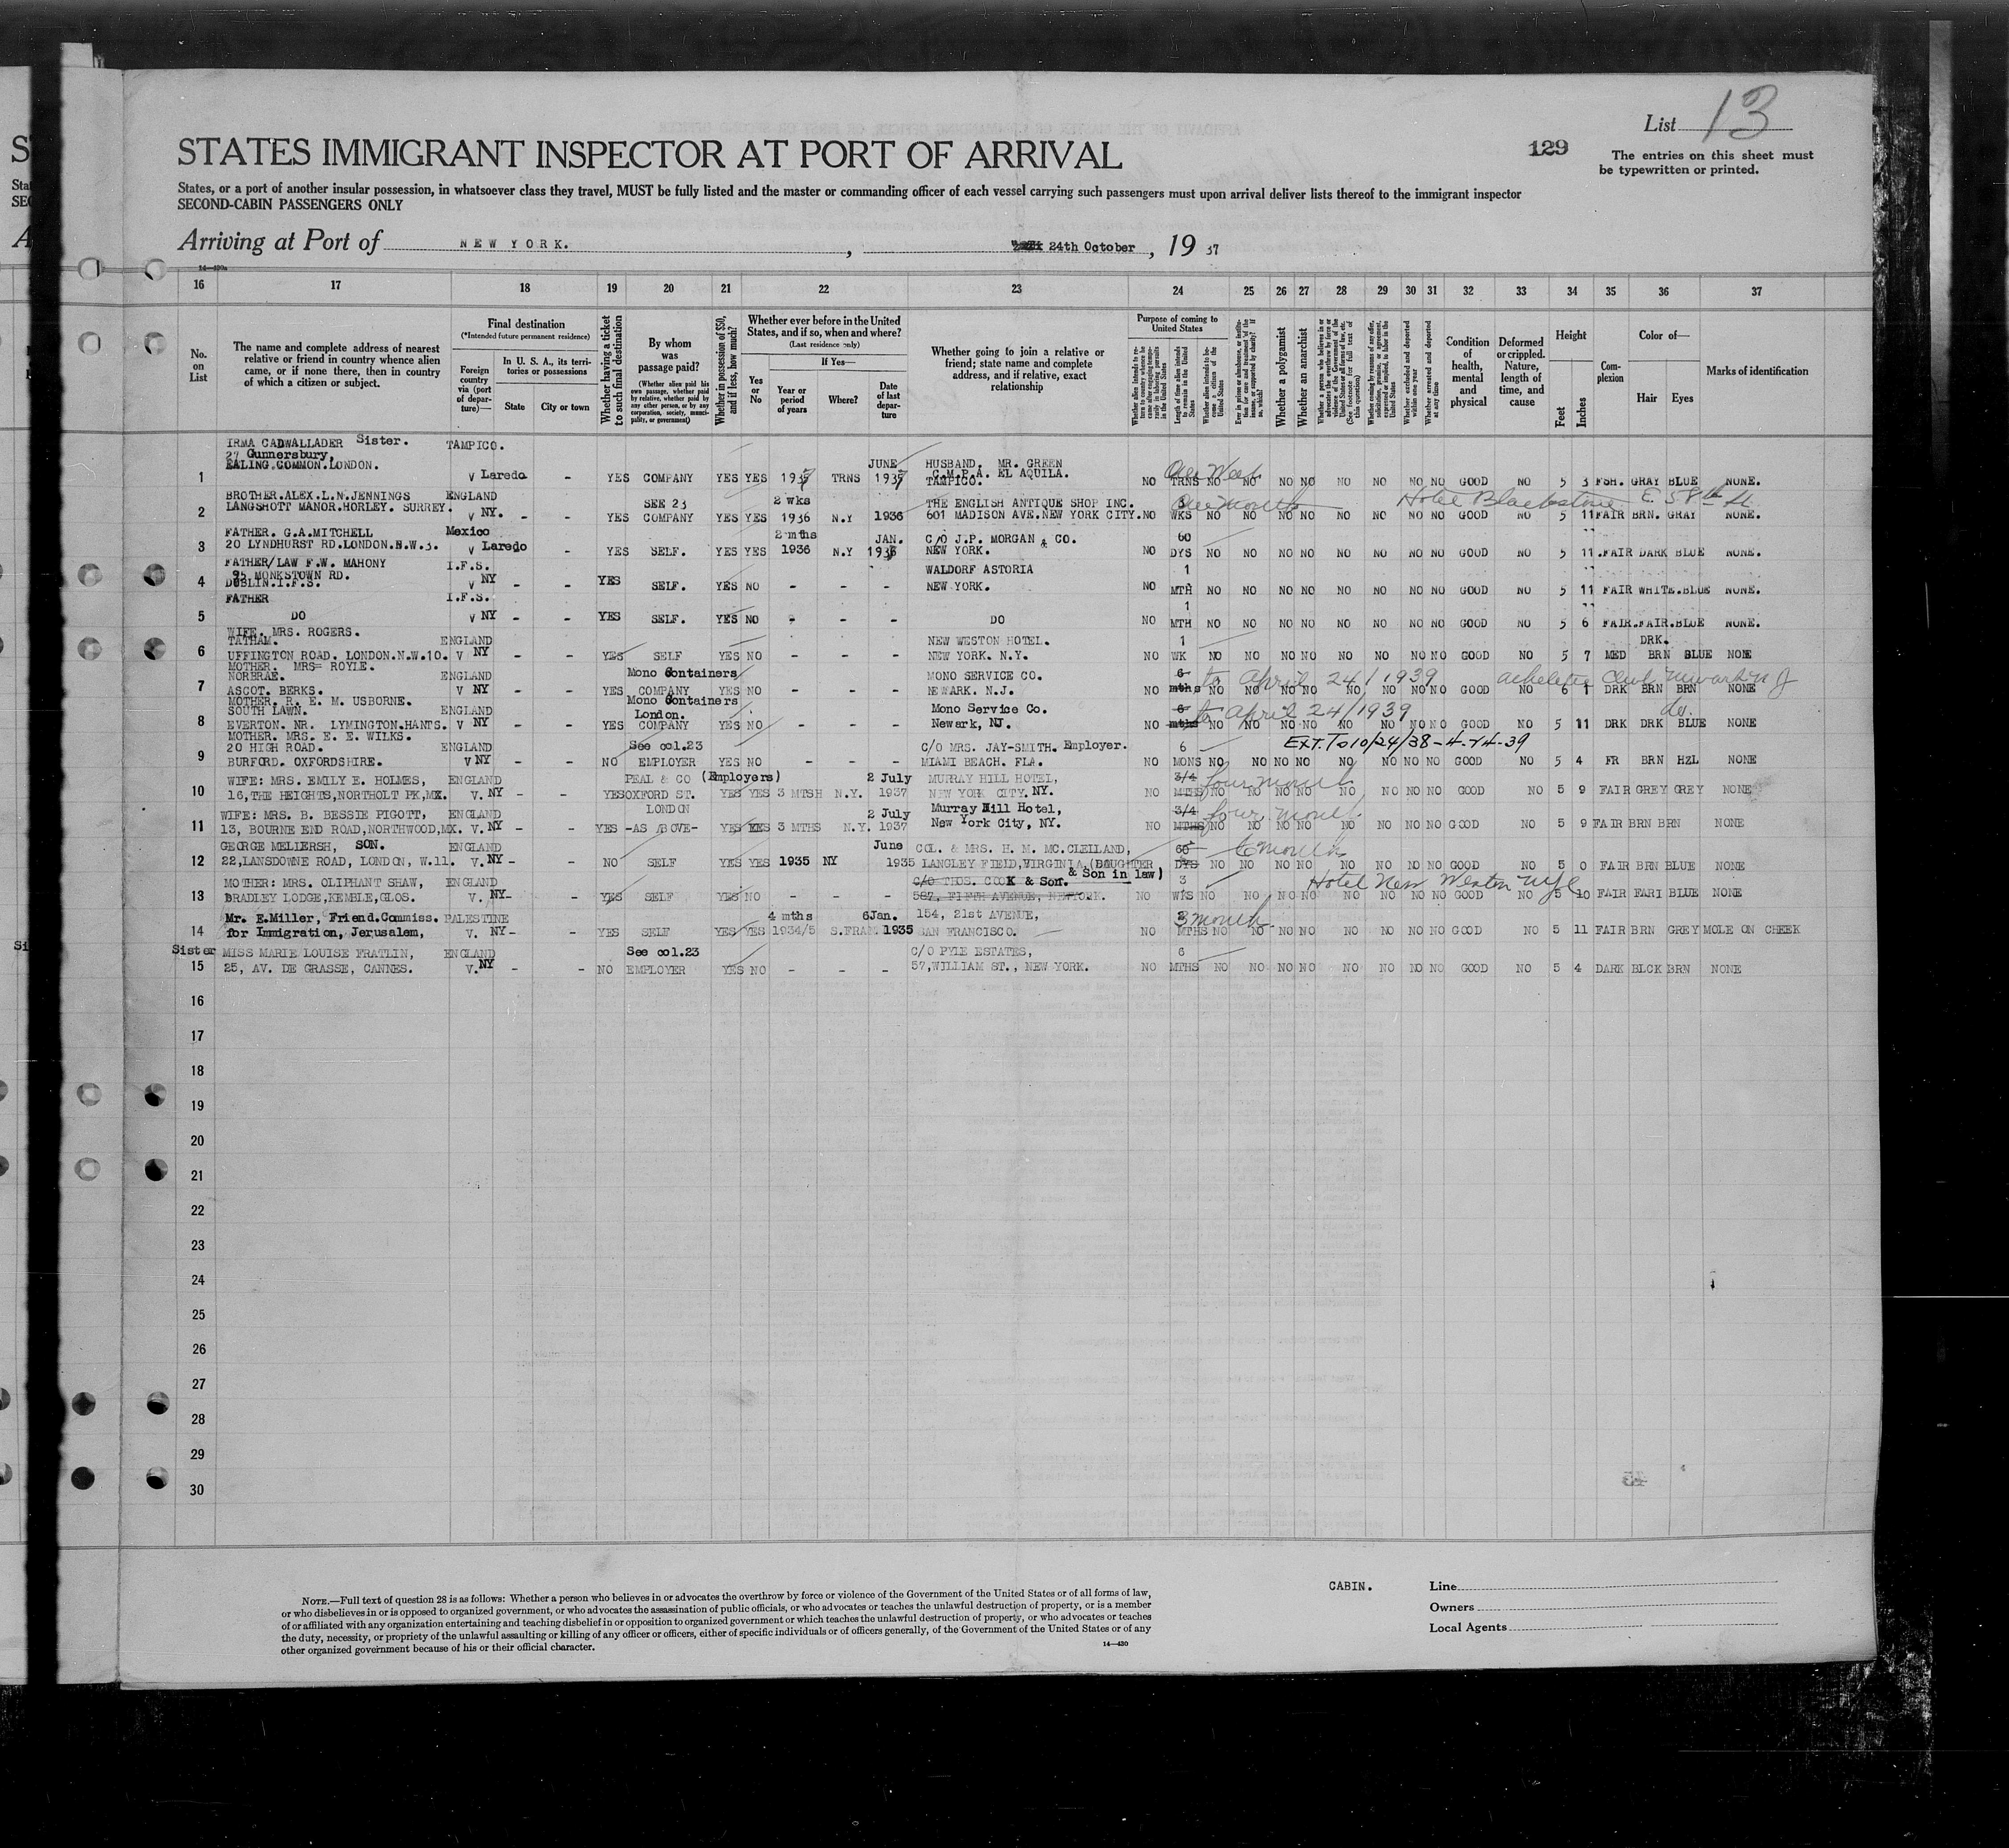 List 13
STATES IMMIGRANT INSPECTOR AT PORT OF ARRIVAL
129
The entries on this sheet must
be typewritten or printed.
States, or a port of another insular possession, in whatsoever class they travel, MUST be fully listed and the master or commanding officer of each vessel carrying such passengers must upon arrival deliver lists thereof to the immigrant inspector
SECOND-CABIN PASSENGERS ONLY
Arriving at Port of NEW YORK. , 24th October , 19 37
16 17 18 19 20 21 22 23 24 25 26 27 28 29 30 31 32 33 34 35 36 37
No. on List
The name and complete address of nearest
relative or friend in country whence alien
came, or if none there, then in country
of which a citizen or subject.
Final destination
(*Intended future permanent residence)
Foreign country via (port of departure)—
In U. S. A., its territories or possessions
State
City or town
Whether having a ticket to such final destination
By whom was passage paid?
(Whether alien paid his own passage, whether paid by relative, whether paid by any other person, or by any corporation, society, municipality, or government)
Whether in possession of $50, and if less, how much?
Whether ever before in the United States, and if so, when and where?
(Last residence only)
Yes or No
If Yes—
Year or period of years
Where?
Date of last departure
Whether going to join a relative or
friend; state name and complete
address, and if relative, exact
relationship
Purpose of coming to United States
Length of time alien intends to remain in the United States
Whether alien intends to become a citizen of the United States
Whether a polygamist
Whether an anarchist
Whether excluded and deported within one year
Whether arrested and deported at any time
Condition of health, mental and physical
Deformed or crippled. Nature, length of time, and cause
Height
Feet
Inches
Complexion
Color of—
Hair
Eyes
Marks of identification
IRMA CADWALLADER Sister. TAMPICO.
27 Gunnersbury, JUNE HUSBAND, MR. GREEN
EALING COMMON.LONDON. C.M.P.A. EL AQUILA.
1 v Laredo - YES COMPANY YES YES 1937 TRNS 1937 TAMPICO. NO TRNS NO NO NO NO NO NO NO NO GOOD NO 5 3 FSH. GRAY BLUE NONE.
One Week
BROTHER.ALEX.L.N.JENNINGS ENGLAND SEE 23 2 wks THE ENGLISH ANTIQUE SHOP INC. One month Hotel Blackstone E. 58th St
LANGSHOTT MANOR.HORLEY. SURREY.
2 v NY. - YES COMPANY YES YES 1936 N.Y 1936 601 MADISON AVE.NEW YORK CITY. NO WKS NO NO NO NO NO NO NO NO GOOD NO 5 11 FAIR BRN. GRAY NONE.
FATHER. G.A.MITCHELL Mexico 2 mths JAN. C/O J.P. MORGAN & CO. 60
3 20 LYNDHURST RD.LONDON.N.W.3. v Laredo - YES SELF. YES YES 1936 N.Y 1936 NEW YORK. NO DYS NO NO NO NO NO NO NO NO GOOD NO 5 11 .FAIR DARK BLUE NONE.
FATHER/LAW F.W. MAHONY I.F.S. WALDORF ASTORIA 1
95 MONKSTOWN RD.
4 DUBLIN.I.F.S. v NY - - YES SELF. YES NO - - - NEW YORK. NO MTH NO NO NO NO NO NO NO NO GOOD NO 5 11 FAIR WHITE.BLUE NONE.
FATHER I.F.S. 1
5 DO v NY - - YES SELF. YES NO - - - DO NO MTH NO NO NO NO NO NO NO NO GOOD NO 5 6 FAIR.FAIR.BLUE NONE.
WIFE. MRS. ROGERS.
TATHAM. ENGLAND NEW WESTON HOTEL. 1 DRK.
6 UFFINGTON ROAD. LONDON.N.W.10. V NY - - YES SELF YES NO - - - NEW YORK. N.Y. NO WK NO NO NO NO NO NO NO NO GOOD NO 5 7 MED BRN BLUE NONE
MOTHER. MRS= ROYLE. Mono Containers
NORBRAE. ENGLAND MONO SERVICE CO. 6 to April 24/1939 Club Newark N J
7 ASCOT. BERKS. V NY - - YES COMPANY YES NO - - - NEWARK. N.J. NO mths NO NO NO NO NO NO NO NO GOOD NO 6 1 DRK BRN BRN NONE
MOTHER. R. E. M. USBORNE. Mono Containers
SOUTH LAWN. ENGLAND London. Mono Service Co. 6 to April 24/1939 do.
8 EVERTON. NR. LYMINGTON.HANTS. V NY - - YES COMPANY YES NO - - - Newark, NJ. NO mths NO NO NO NO NO NO NO NO GOOD NO 5 11 DRK DRK BLUE NONE
MOTHER. MRS. E. E. WILKS.
20 HIGH ROAD. ENGLAND See col.23 C/O MRS. JAY-SMITH. Employer. 6 EXT. To 10/24/38-4-24-39
9 BURFORD. OXFORDSHIRE. V NY - - NO EMPLOYER YES NO - - - MIAMI BEACH. FLA. NO MONS NO NO NO NO NO NO NO NO GOOD NO 5 4 FR BRN HZL NONE
WIFE: MRS. EMILY E. HOLMES, ENGLAND PEAL & CO (Employers) 2 July MURRAY HILL HOTEL, 3/4 four months
10 16,THE HEIGHTS,NORTHOLT PK,MX. V. NY - - YES OXFORD ST. YES YES 3 MTSH N.Y. 1937 NEW YORK CITY. NY. NO MTHS NO NO NO NO NO NO NO NO GOOD NO 5 9 FAIR GREY GREY NONE
LONDON
WIFE: MRS. B. BESSIE PIGOTT, ENGLAND 2 July Murray Hill Hotel, 3/4 four months
11 13, BOURNE END ROAD,NORTHWOOD,MX. V. NY - - YES -AS ABOVE- YES YES 3 MTHS N.Y. 1937 New York City, NY. NO MTHS NO NO NO NO NO NO NO NO GOOD NO 5 9 FAIR BRN BRN NONE
GEORGE MELLERSH, SON. ENGLAND June COL. & MRS. H. M. MC.CLEILAND, 60 6 months
12 22,LANSDOWNE ROAD, LONDON, W.11. V. NY - - NO SELF YES YES 1935 NY 1935 LANGLEY FIELD,VIRGINIA,(DAUGHTER NO DYS NO NO NO NO NO NO NO NO GOOD NO 5 0 FAIR BRN BLUE NONE
& Son in law)
MOTHER: MRS. OLIPHANT SHAW, ENGLAND C/O THOS. COOK & Son. 3 Hotel New Weston NYC
13 BRADLEY LODGE,KEMBLE,GLOS. V. NY - - YES SELF YES NO - - - 587, FIFTH AVENUE, NEWYORK. NO WKS NO NO NO NO NO NO NO NO GOOD NO 5 10 FAIR FARI BLUE NONE
Mr. E.Miller, Friend.Commiss. PALESTINE 4 mths 6Jan. 154, 21st AVENUE, 3 months
14 for Immigration, Jerusalem, V. NY - - YES SELF YES YES 1934/5 S.FRAN 1935 SAN FRANCISCO. NO MTHS NO NO NO NO NO NO NO NO GOOD NO 5 11 FAIR BRN GREY MOLE ON CHEEK
Sister MISS MARIE LOUISE FRATLIN, ENGLAND See col.23 C/O PYLE ESTATES, 6
15 25, AV. DE GRASSE, CANNES. V. NY - - NO EMPLOYER YES NO - - - 57,WILLIAM ST., NEW YORK. NO MTHS NO NO NO NO NO NO NO NO GOOD NO 5 4 DARK BLCK BRN NONE
16
17
18
19
20
21
22
23
24
25
26
27
28
29
30
NOTE.—Full text of question 28 is as follows: Whether a person who believes in or advocates the overthrow by force or violence of the Government of the United States or of all forms of law,
or who disbelieves in or is opposed to organized government, or who advocates the assassination of public officials, or who advocates or teaches the unlawful destruction of property, or is a member
of or affiliated with any organization entertaining and teaching disbelief in or opposition to organized government or which teaches the unlawful destruction of property, or who advocates or teaches
the duty, necessity, or propriety of the unlawful assaulting or killing of any officer or officers, either of specific individuals or of officers generally, of the Government of the United States or of any
other organized government because of his or their official character.
14—430
CABIN.
Line
Owners
Local Agents